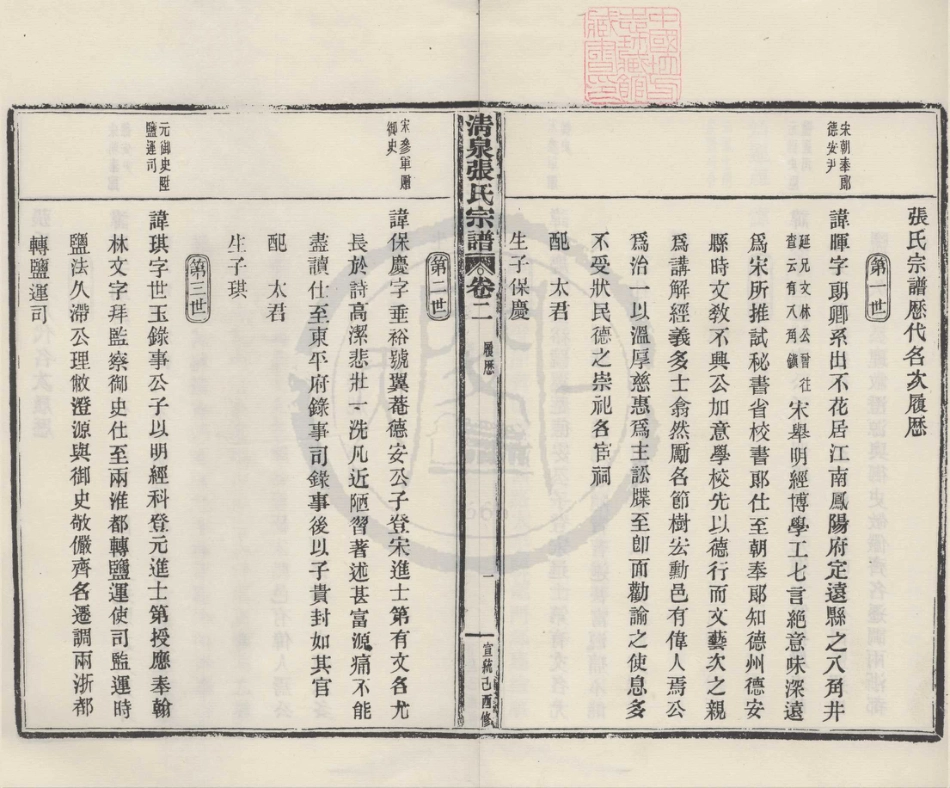 張氏宗譜歷代名次履歷
第一世
宋朝奉郎
德安尹
諱暉字朗卿系出不花居江南鳳陽府定遠縣之八角井
延兄文林公曾往
查云有八角鎮
宋舉明經博學工七言絶意味深遠
爲宋所推試秘書省校書郎仕至朝奉郎知德州德安
縣時文敎不興公加意學校先以德行而文藝次之親
爲講解經義多士翕然勵名節樹宏勳邑有偉人焉公
爲治一以溫厚慈惠爲主訟牒至卽面勸諭之使息多
不受狀民德之崇祀名宦祠
配　太君
生子保慶
清泉張氏宗譜
卷二
履歷
一
宣統己酉修
第二世
宋參軍贈
御史
諱保慶字垂裕號翼菴德安公子登宋進士第有文名尤
長於詩高潔悲壯一洗凡近陋習著述甚富源痛不能
盡讀仕至東平府錄事司錄事後以子貴封如其官
配　太君
生子琪
第三世
元御史陞
鹽運司
諱琪字世玉錄事公子以明經科登元進士第授應奉翰
林文字拜監察御史仕至兩淮都轉鹽運使司監運時
鹽法久滯公理敝澄源與御史敬儼齊名遷調兩浙都
轉鹽運司